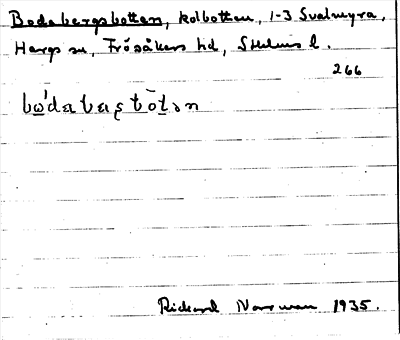 Bodabergsbotten, kolbotten, 1-3 Svalmyra,
Hargs sn, Frösåkers hd, Sthlms l.
266
Rickard Norrman 1935.